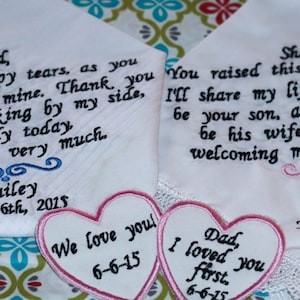 d,
py tears, as you
mine. Thank you
king by my side,
y today,
very much.
iley
6th, 2015
She
You raised this
I'll share my li
be your son, a
be his wife
welcoming m
We love you!
6-6-15
Dad,
I loved you
first.
6-6-15